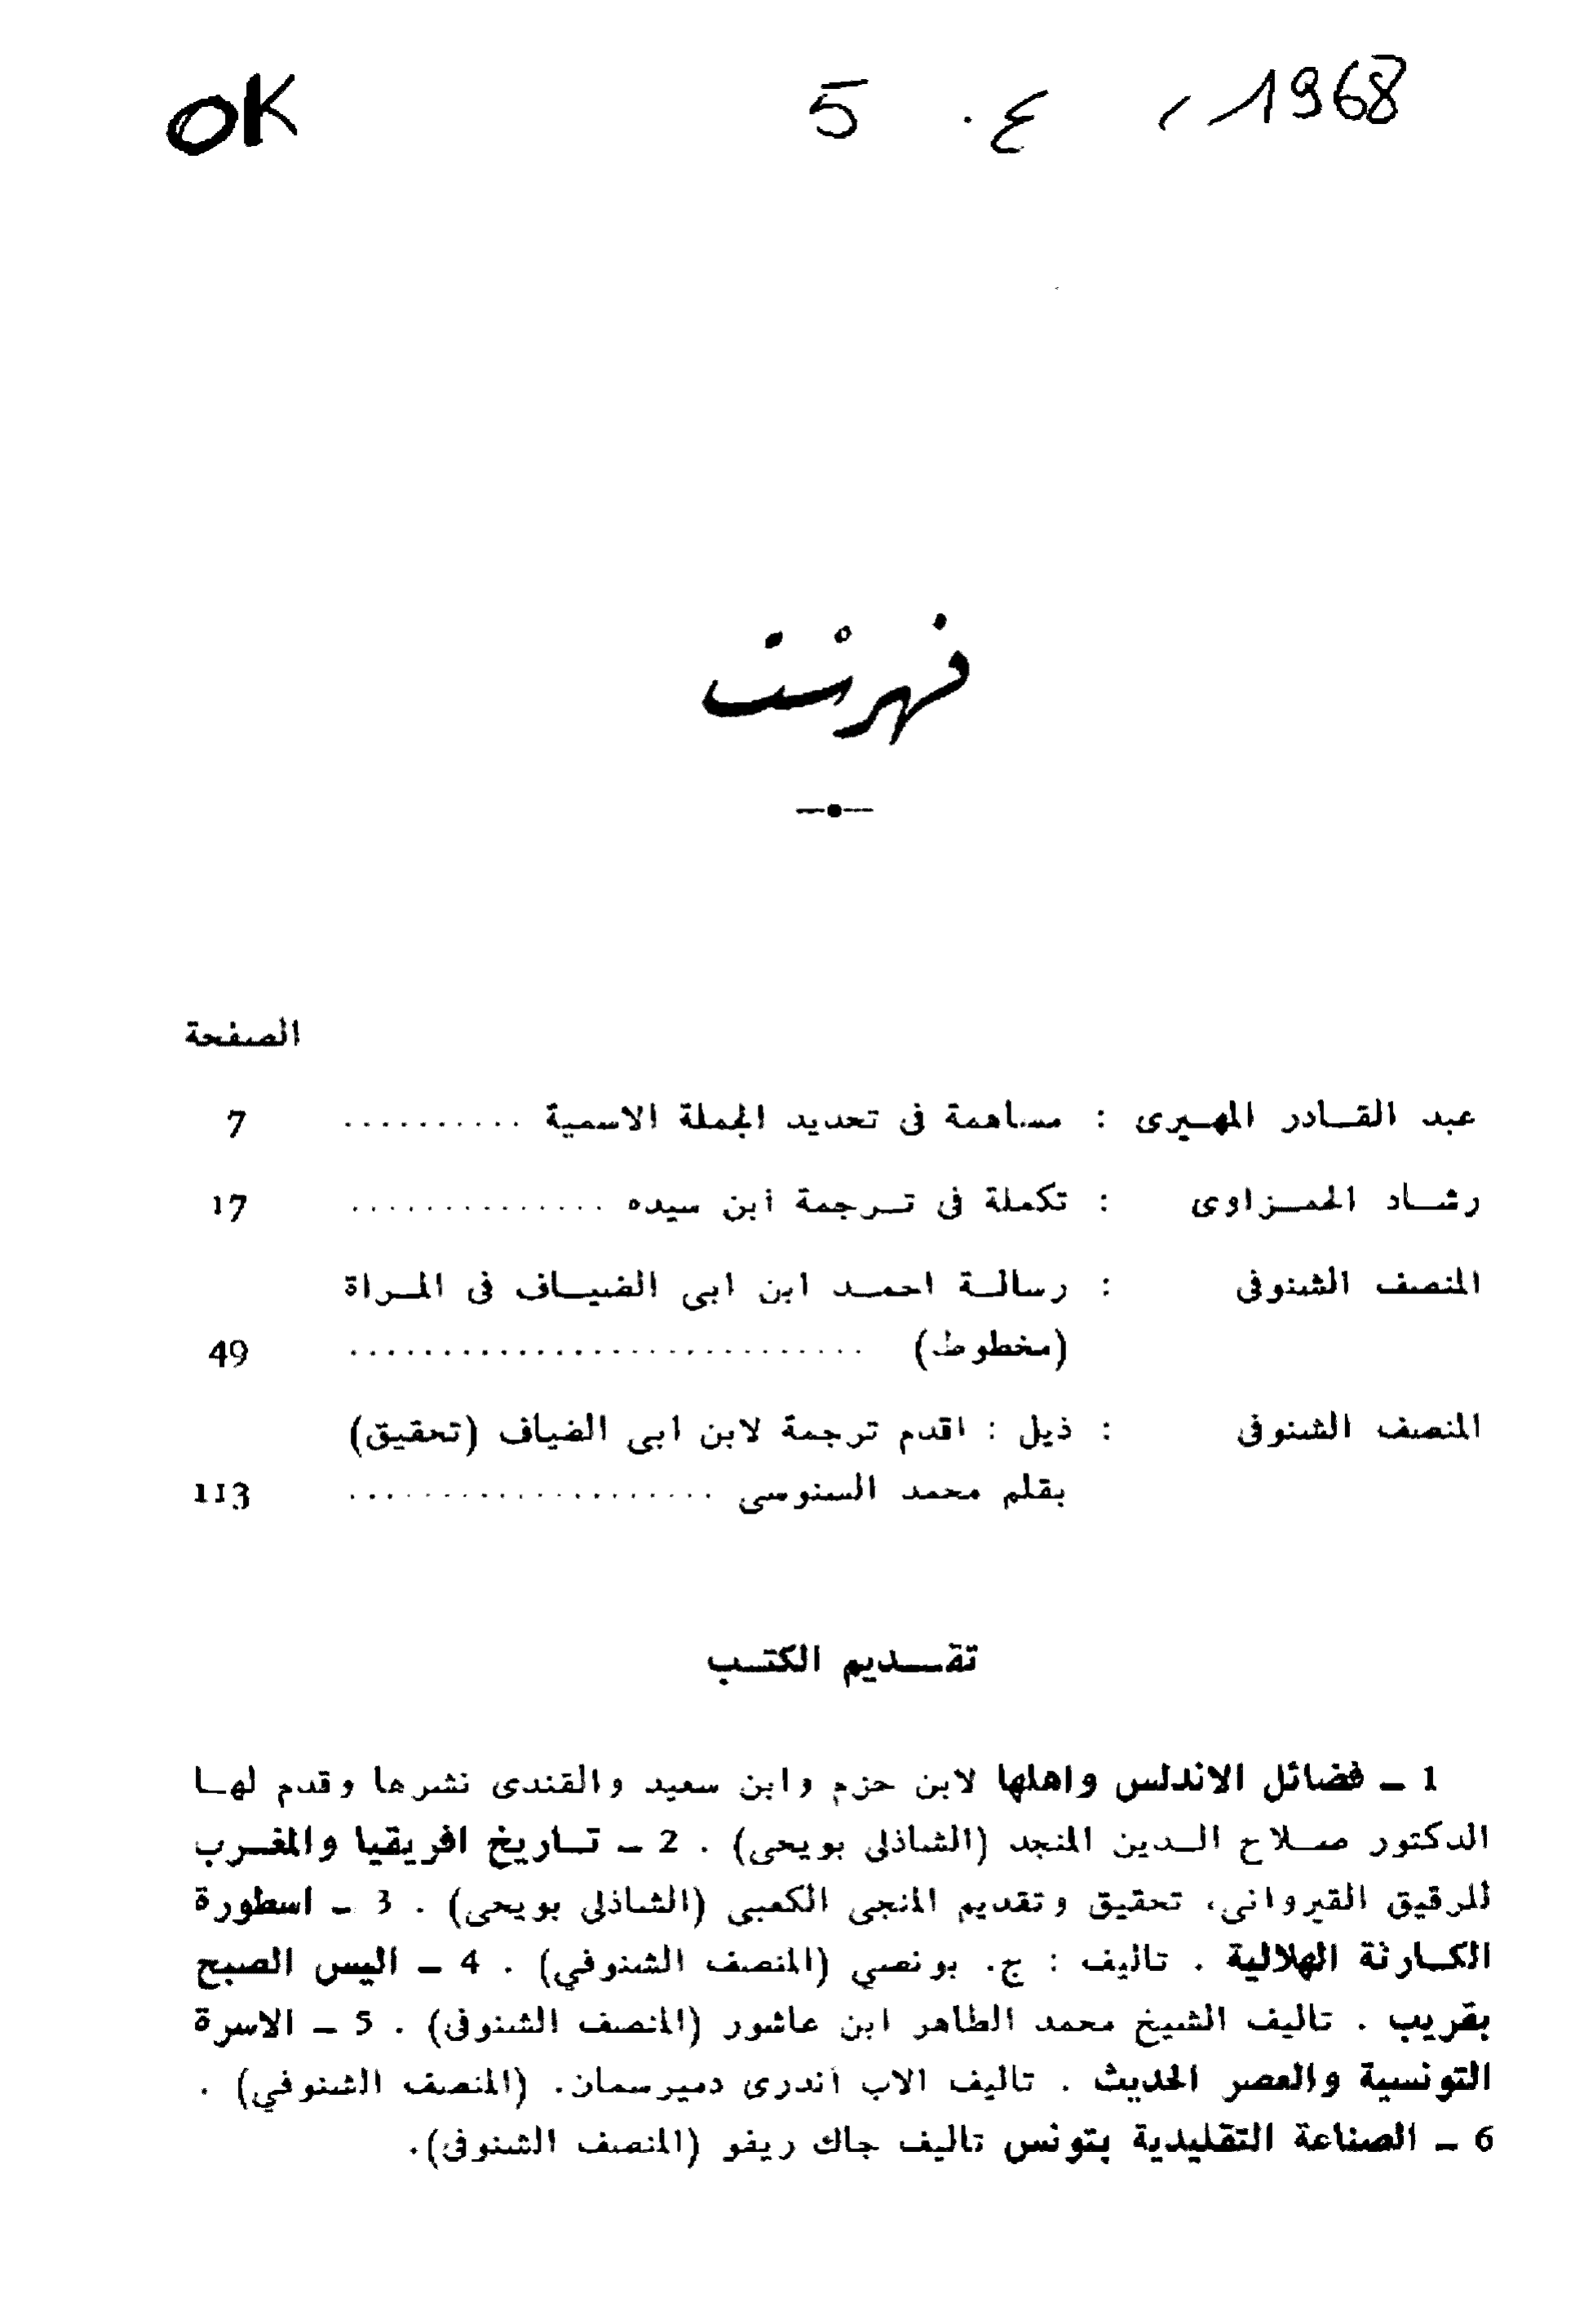 1968 ، ع . 5 OK
فهرست
الصفحة
عبد القادر المهيرى : مساهمة فى تحديد الجملة الاسمية .......... 7
رشاد الحمزاوى : تكملة فى ترجمة أبن سيده .............. 17
المنصف الشنوفى : رسالة احمد ابن ابى الضياف فى المراة
(مخطوط) ............................ 49
المنصف الشنوفى : ذيل : اقدم ترجمة لابن ابى الضياف (تحقيق)
بقلم محمد السنوسى .................... 113
تقديم الكتب
1 – فضائل الاندلس واهلها لابن حزم وابن سعيد والقندى نشرها وقدم لها
الدكتور صلاح الدين المنجد (الشاذلى بويحى) . 2 – تاريخ افريقيا والمغرب
للرقيق القيروانى، تحقيق وتقديم المنجى الكعبى (الشاذلى بويحى) . 3 – اسطورة
الكارثة الهلالية . تاليف : ج. بونصي (المنصف الشنوفي) . 4 – اليس الصبح
بقريب . تاليف الشيخ محمد الطاهر ابن عاشور (المنصف الشنوفى) . 5 – الاسرة
التونسية والعصر الحديث . تاليف الاب أندرى دميرسمان. (المنصف الشنوفي) .
6 – الصناعة التقليدية بتونس تاليف جاك ريفو (المنصف الشنوفى).